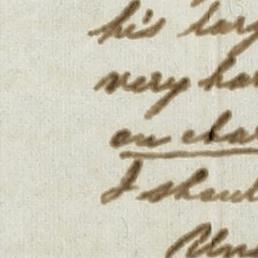 his larg
very har
on char
I shoul
Un